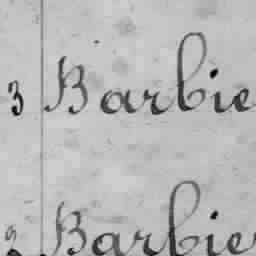 3 Barbie
2 Barbier